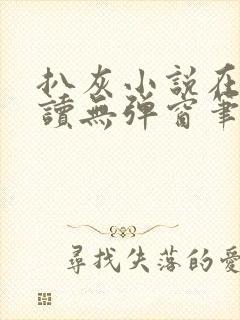 扒灰小説在
讀無彈窗筆
尋找失落的愛